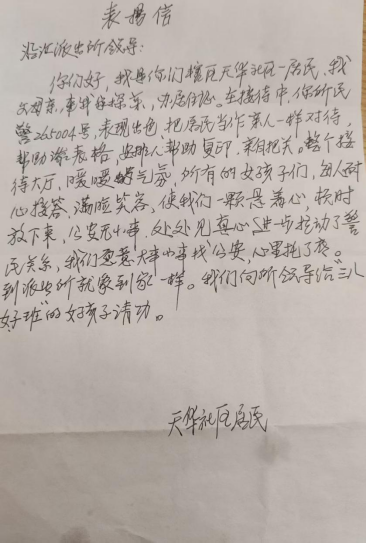 表扬信
沿江派出所领导:
你们好,我是你们辖区天华社区一居民,我
父母亲,来我家探亲,办居住证。在接待中,你所民
警265004号,表现出色,把居民当作亲人一样对待,
帮助填表格,安排人帮助复印,亲自把关。整个接
待大厅,暖暖的气氛,所有的女孩子们,每人耐
心接答,满脸笑容,使我们一颗悬着心,顿时
放下来,公安无小事,处处见真心,进一步拉动了警
民关系,我们愿意大事小事找公安,心里托了底。
到派出所就象到家一样。我们向所领导给“三八
好班”的好孩子请功。
天华社区居民